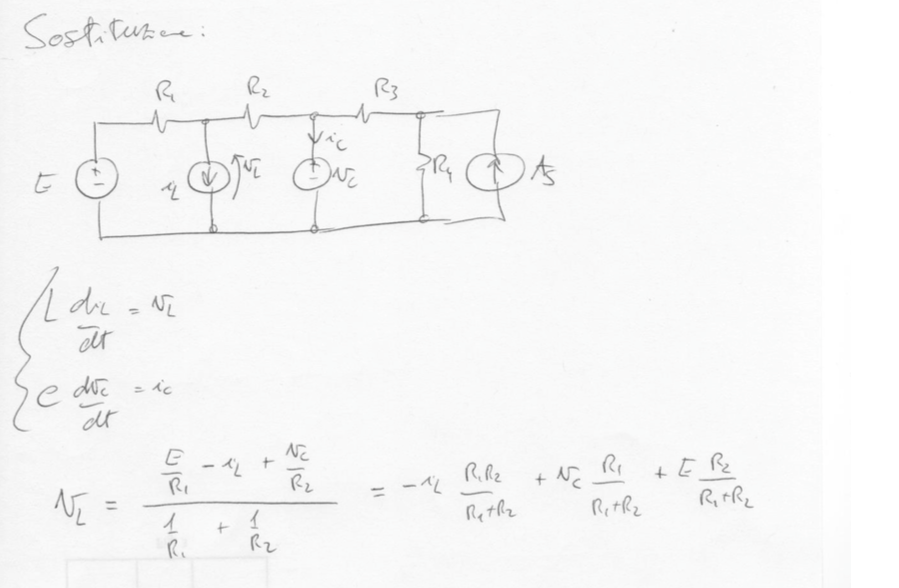 Sostituzione:
R₁ R₂ R₃
i_C
E + − i_L v_L + − v_C R₄ A₅
L di_L/dt = v_L
C dv_C/dt = i_C
v_L = (E/R₁ − i_L + v_C/R₂) / (1/R₁ + 1/R₂) = −i_L R₁R₂/(R₁+R₂) + v_C R₁/(R₁+R₂) + E R₂/(R₁+R₂)